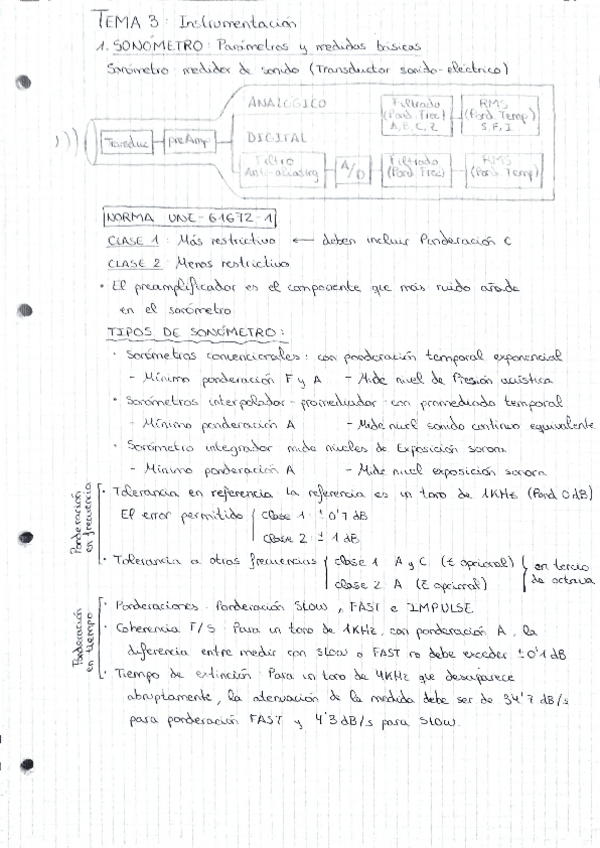 TEMA 3: Instrumentación
1. SONÓMETRO: Parámetros y medidas básicas
Sonómetro: medidor de sonido (Transductor sonido-eléctrico)
ANALÓGICO
Filtrado (Pond Frec) A, B, C, Z
RMS (Pond Temp) S, F, I
Transduc
preAmp
DIGITAL
Filtro Anti-aliasing
A/D
Filtrado (Pond Frec)
RMS (Pond Temp)
NORMA UNE-61672-1
CLASE 1: Más restrictivo ← deben incluir Ponderación C
CLASE 2: Menos restrictivo
• El preamplificador es el componente que más ruido añade
en el sonómetro
TIPOS DE SONÓMETRO:
· Sonómetros convencionales: con ponderación temporal exponencial
- Mínimo ponderación F y A - Mide nivel de Presión acústica
· Sonómetros interpolador-promediador: con promediado temporal
- Mínimo ponderación A - Mide nivel sonido continuo equivalente
· Sonómetro integrador mide niveles de Exposición sonora
- Mínimo ponderación A - Mide nivel exposición sonora
Ponderación en frecuencia
· Tolerancia en referencia: la referencia es un tono de 1KHz (Pond 0dB)
El error permitido { Clase 1: ±0'7 dB
Clase 2: ± 1 dB
· Tolerancia a otras frecuencias { clase 1: A y C (Z opcional) } en tercio
clase 2: A (Z opcional) de octava
Ponderación en tiempo
· Ponderaciones: Ponderación SLOW, FAST e IMPULSE
· Coherencia F/S: Para un tono de 1KHz, con ponderación A, la
diferencia entre medir con slow o FAST no debe exceder ±0'1 dB
· Tiempo de extinción: Para un tono de 4KHz que desaparece
abruptamente, la atenuación de la medida debe ser de 34'7 dB/s
para ponderación FAST y 4'3 dB/s para SLOW.